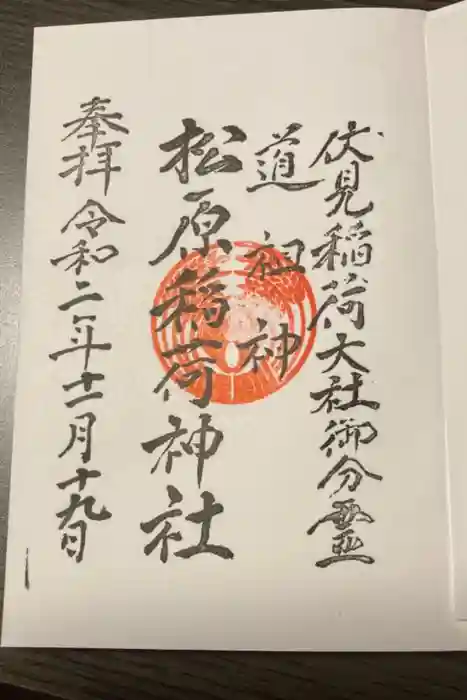 伏見稲荷大社御分霊
道祖神
松原稲荷神社
奉拝 令和二年十一月十九日